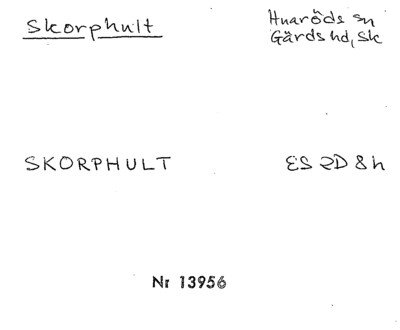 Skorphult
Huaröds sn
Gärds hd, Sk
SKORPHULT
ES 2D 8h
Nr 13956